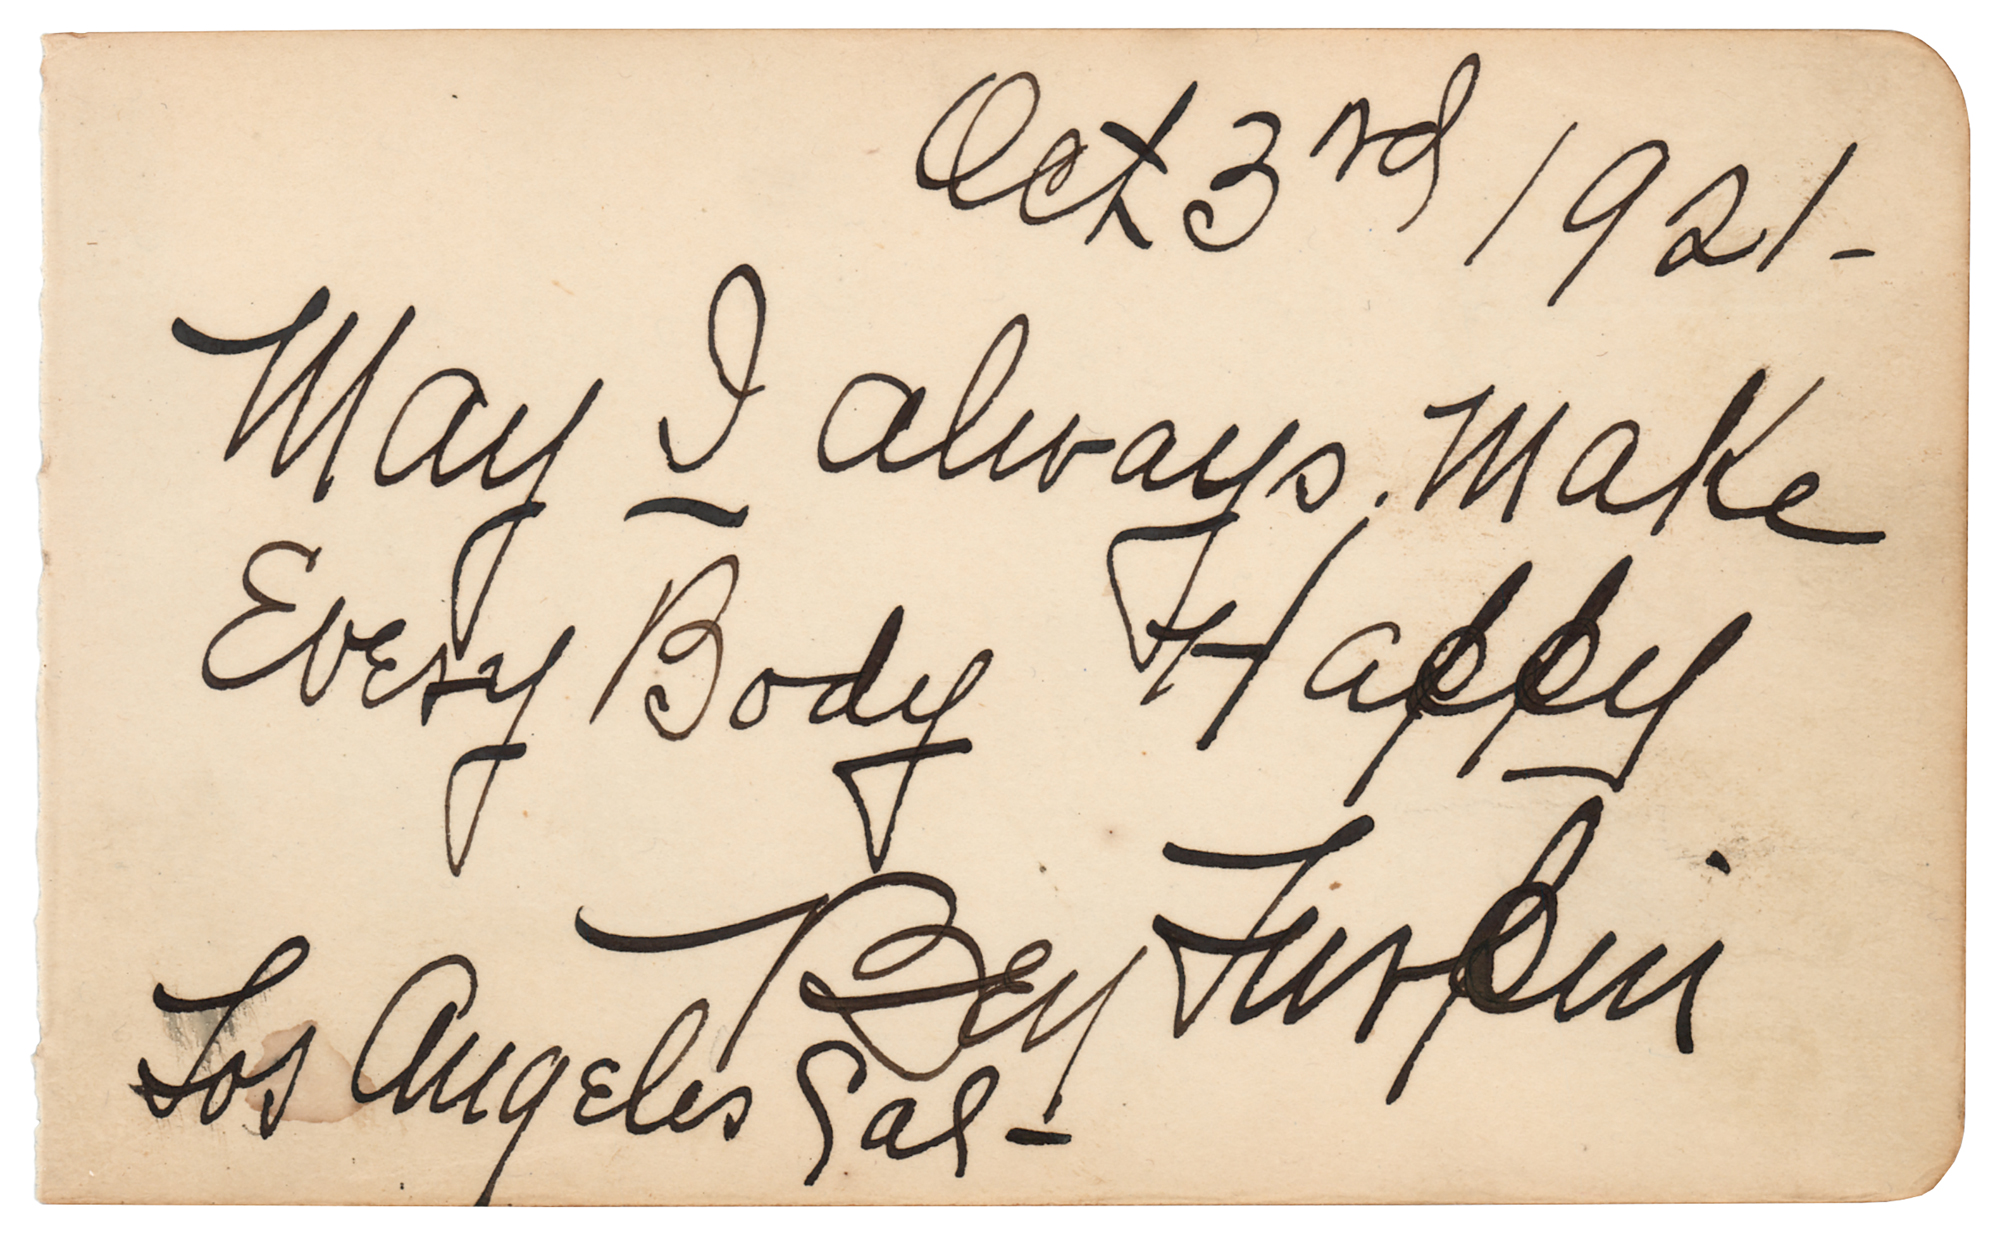 Oct 3rd 1921-
May I always. Make
Every Body Happy
Ben Turpin
Los Angeles Cal-